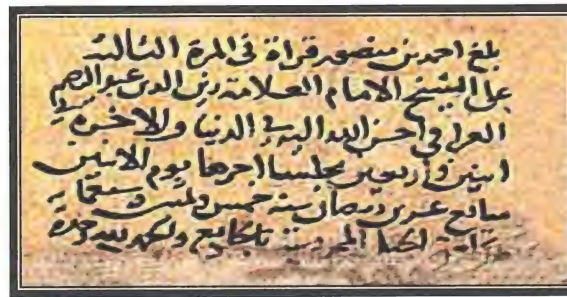 بلغ احمد بن منصور قراة فى المرة الثالثة
على الشيخ الامام العلامة زين الدين عبد الرحيم
العراقى احسن الله اليه فى الدنيا والاخرة
اثنين واربعين مجلسا اخرها يوم الاثنين
سابع عشرى رمضان سنة خمس وسبعمايه
المحروسة والحمد لله وحده